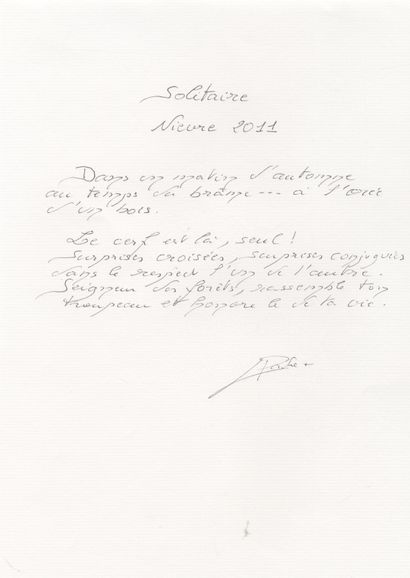 Solitaire
Nievre 2011
Dans un matin d'automne
au temps du brâme --- à l'orée
d'un bois.
Le cerf est là, seul !
Surprises croisées, surprises conjuguées
dans le respect l'un de l'autre.
Seigneur des forêts, rassemble ton
troupeau et honore le de ta vie.